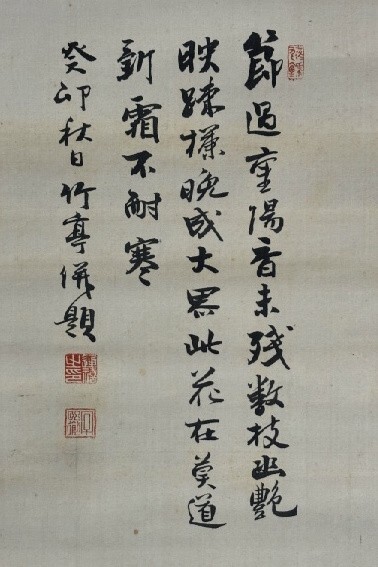 節過重陽香未残数枝幽艷
映疎欄晚成大器此花在莫道
新霜不耐寒
癸卯秋日竹亭併題